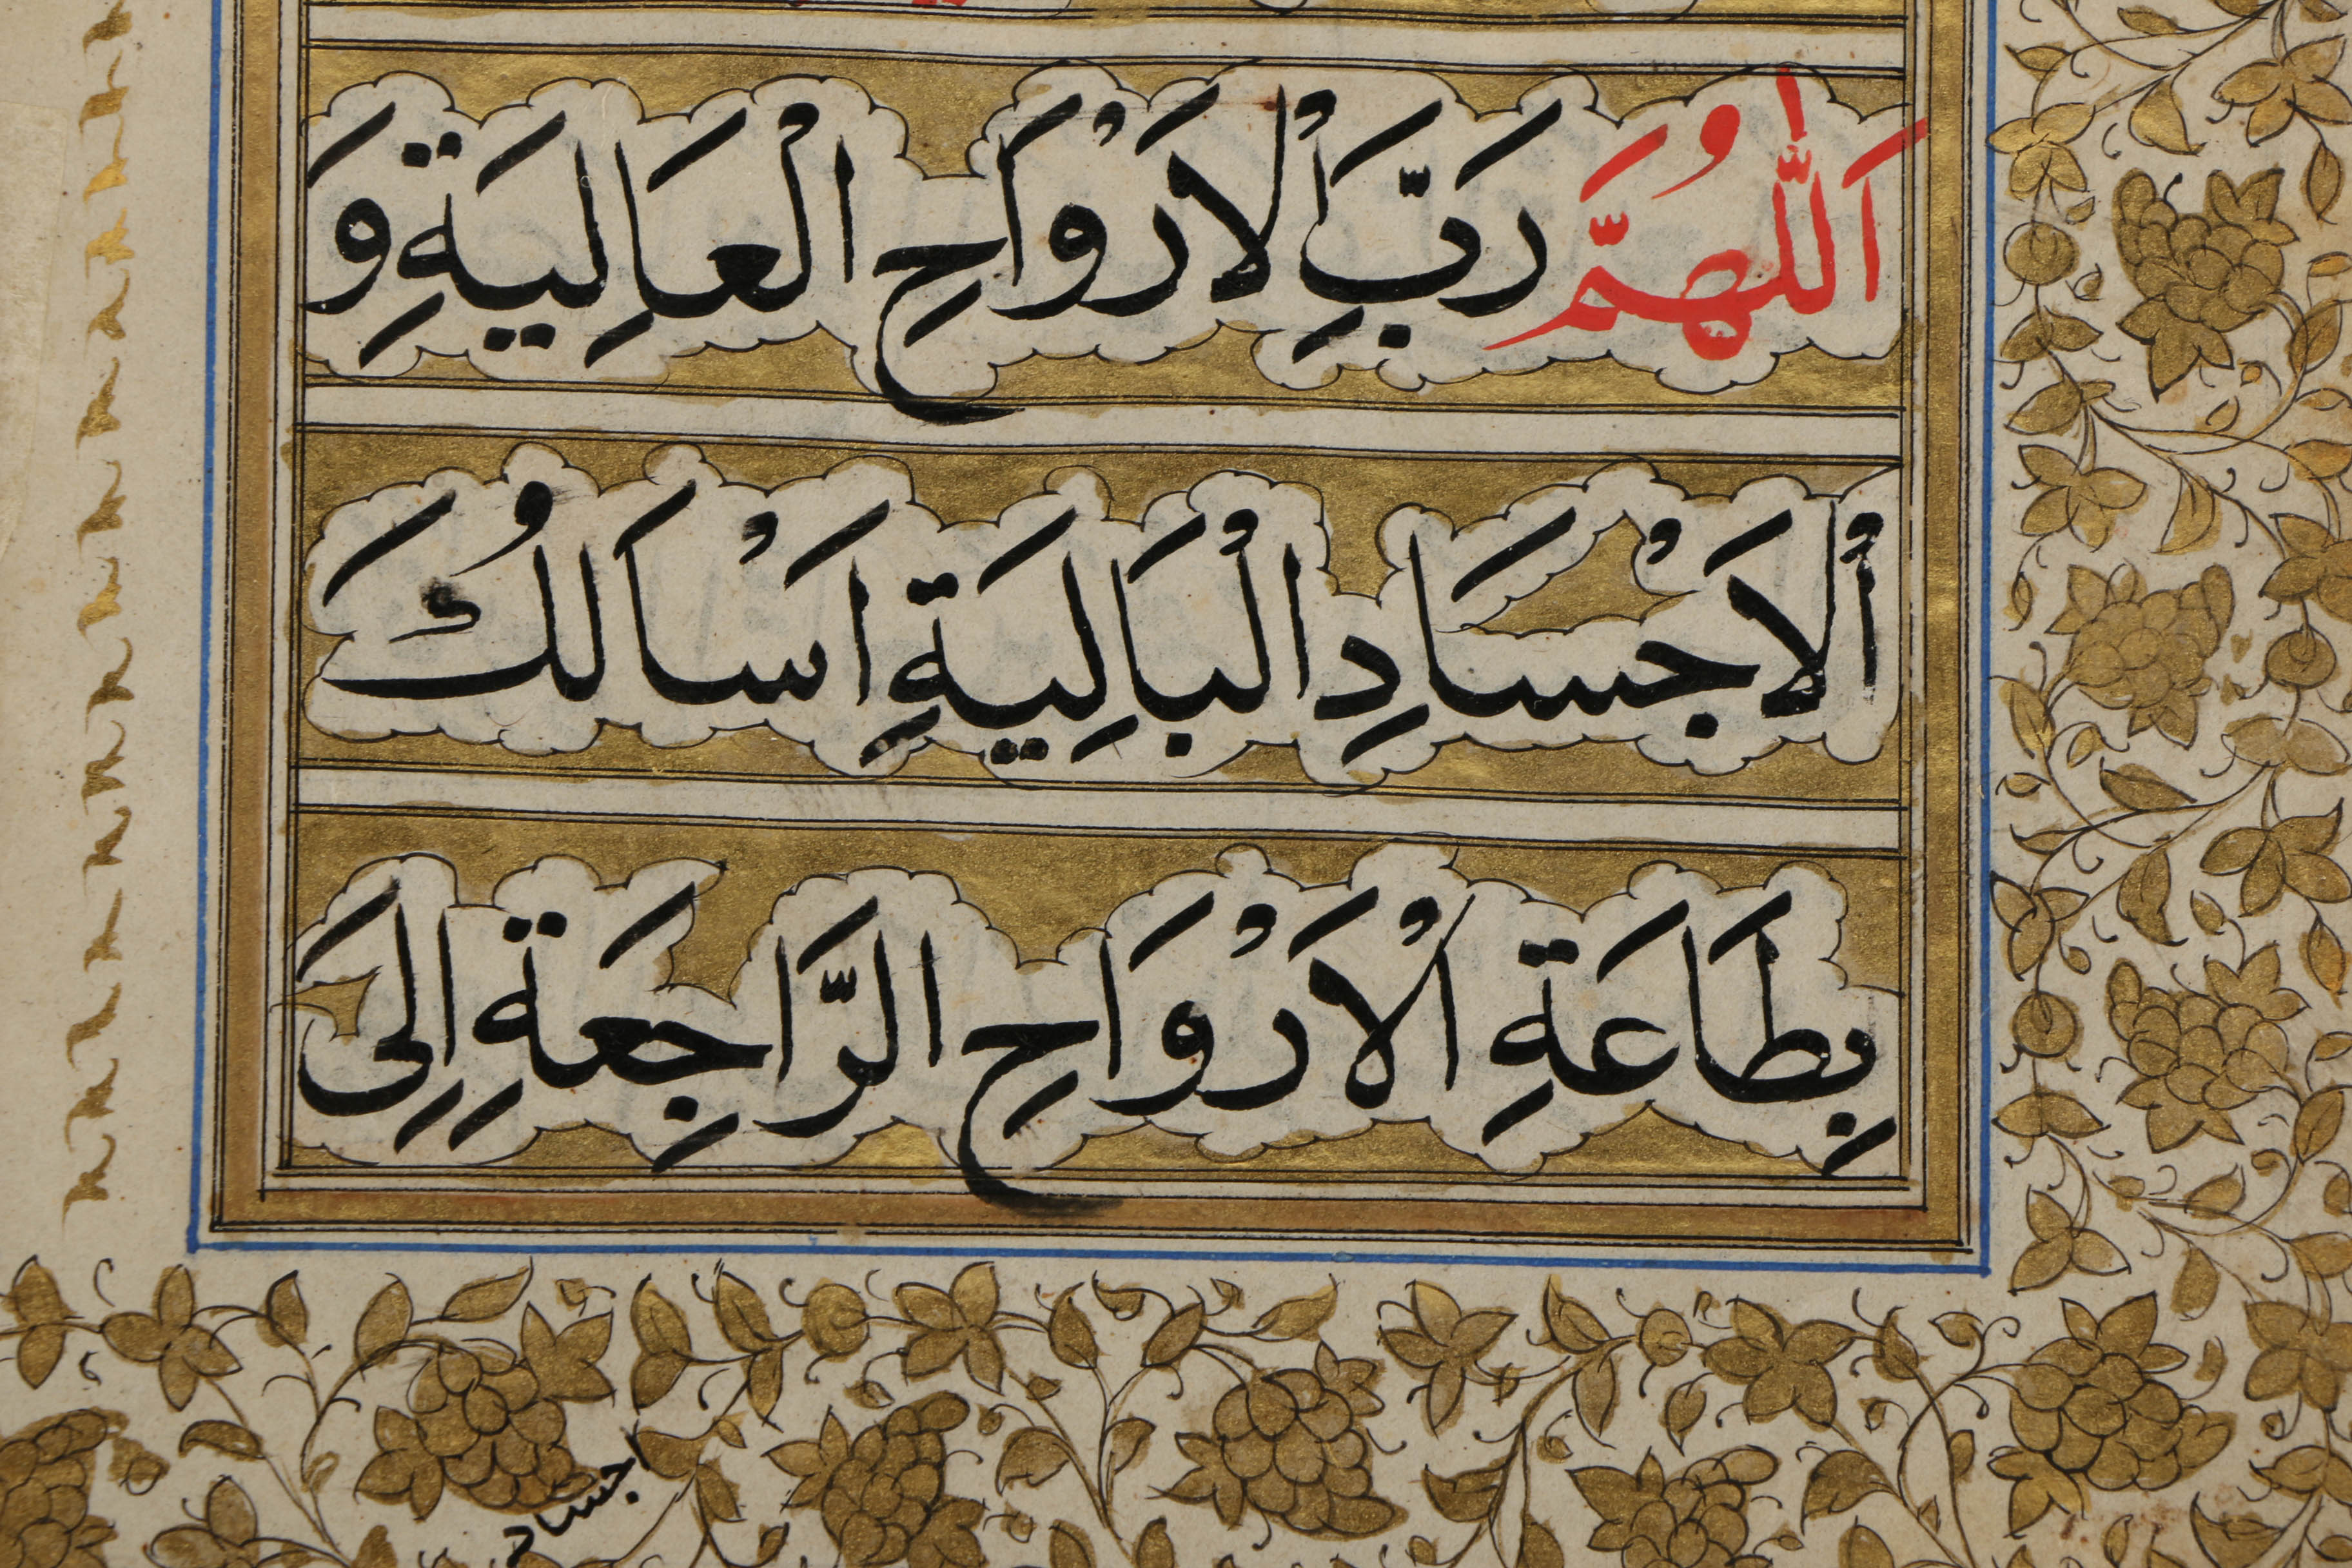 اَللّٰهُمَّ رَبَّ اْلاَرْوَاحِ الْعَالِيَةِ وَ
اْلاَجْسَادِ الْبَالِيَةِ اَسْاَلُكَ
بِطَاعَةِ اْلاَرْوَاحِ الرَّاجِعَةِ اِلىَ
اجساد